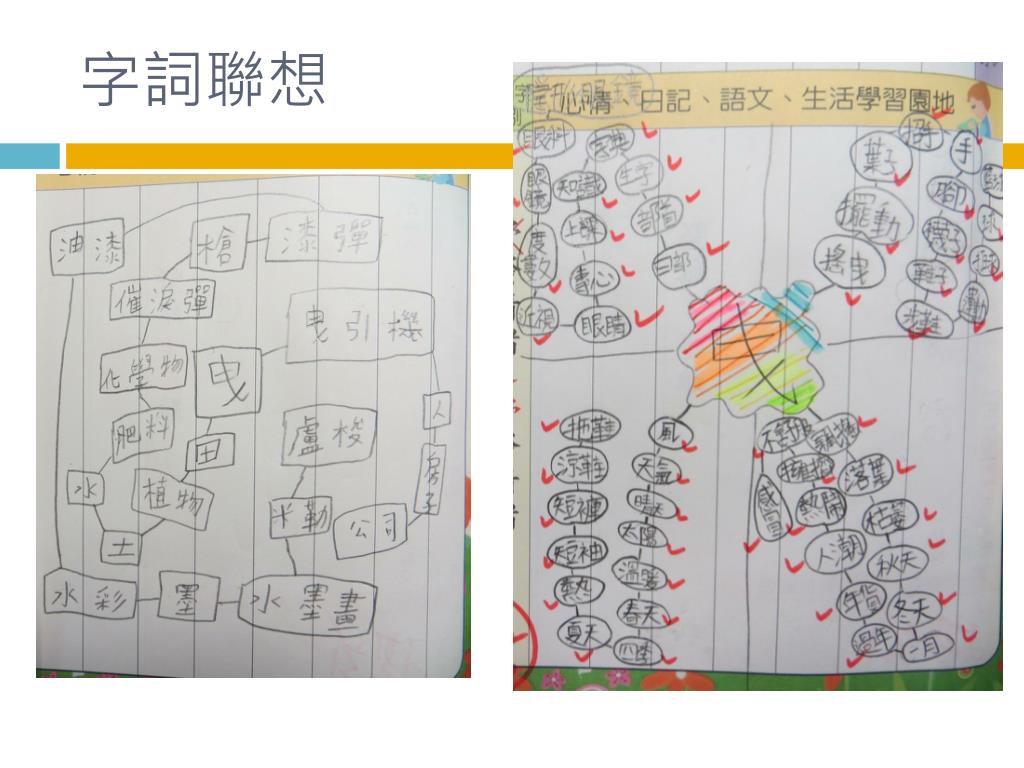 字詞聯想
心情、日記、語文、生活學習園地
油漆
槍
漆彈
催淚彈
曳引機
化學物
曳
人
肥料
田
盧梭
房子
水
植物
米勒
公司
土
水彩
墨
水墨畫
眼鏡
眼科
字典
生字
部首
曰部
眼鏡
知識
上課
度數
專心
近視
眼睛
招手
葉子
手
擺動
腳
搖曳
葉子
運動
球
曳
拖鞋
風
涼鞋
天氣
短褲
晴天
短袖
太陽
熱
溫暖
夏天
春天
四季
擁擠
落葉
感冒
熱鬧
枯萎
人潮
秋天
年貨
冬天
過年
一月